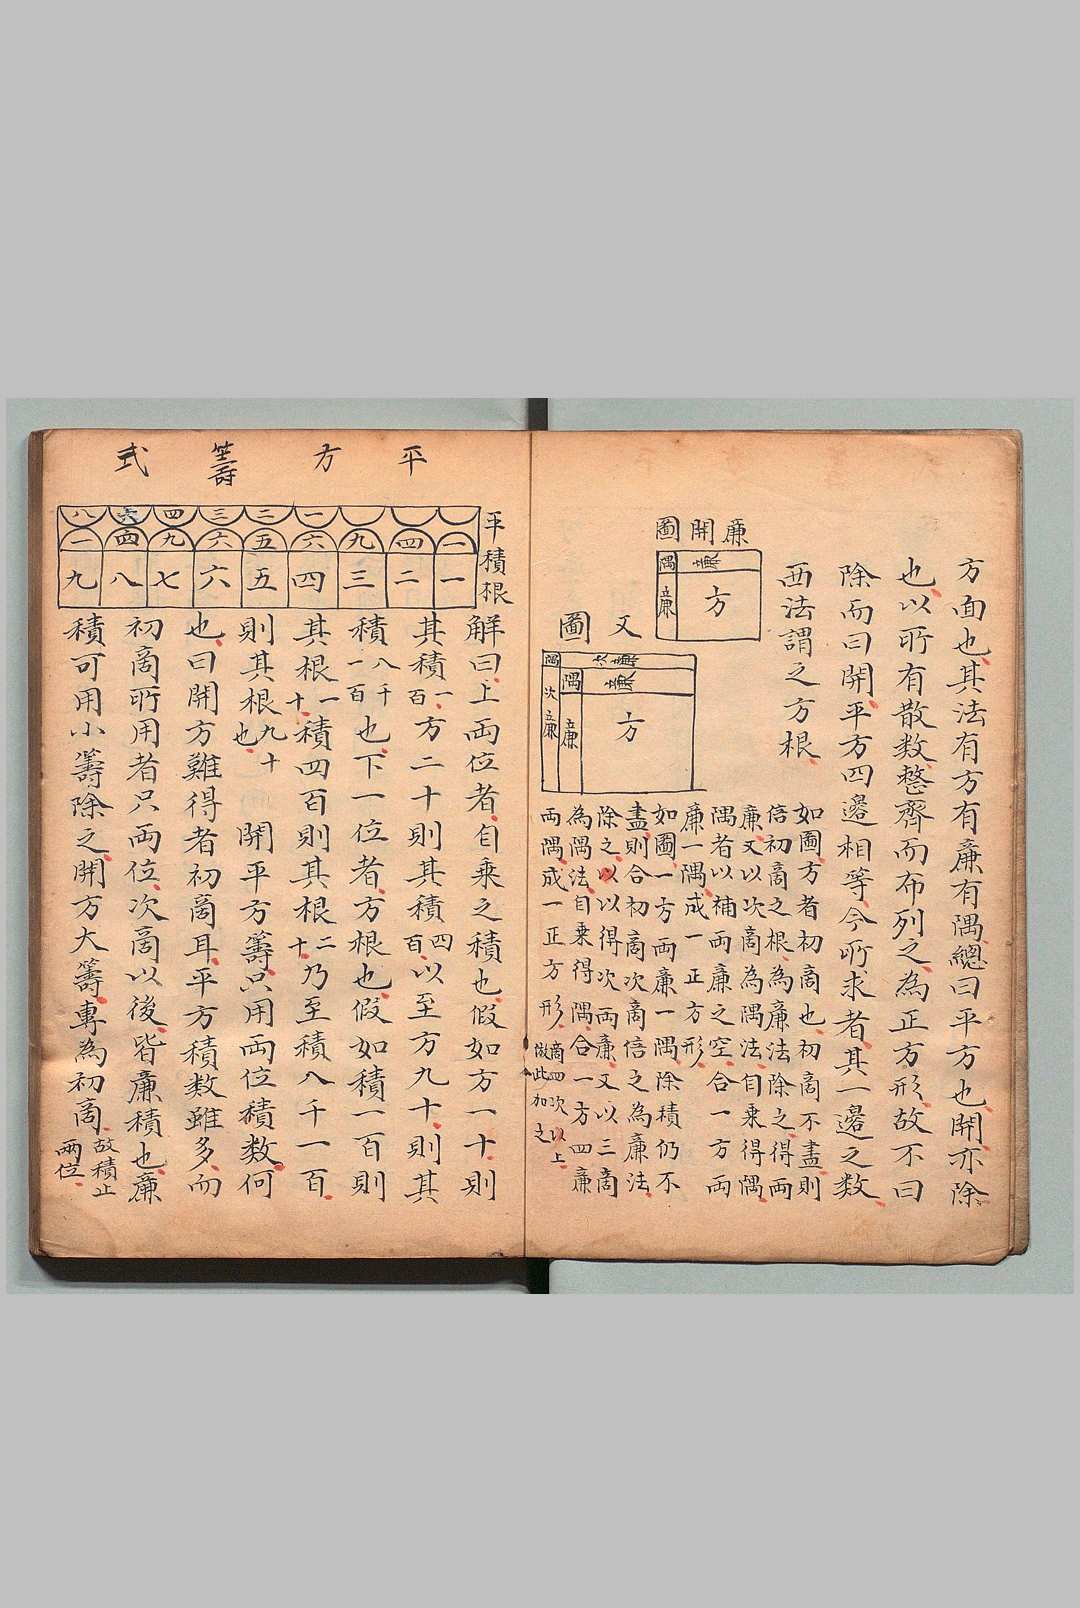 方面也其法有方有廉有隅總曰平方也開亦除
也以所有散数整齊而布列之為正方形故不曰
除而曰開平方四邊相等今所求者其一邊之数
西法謂之方根
廉開圖
隅廉
廉方
又圖
隅次廉
次廉隅廉
廉方
如圖方者初啇也初啇不盡則
倍初啇之根為廉法除之得两
廉又以次啇為隅法自乗得隅
隅者以補两廉之空合一方两
廉一隅成一正方形
如圖一方两廉一隅除積仍不
盡則合初啇次啇倍之為廉法
除之以以得次两廉又以三啇
為隅法自乗得隅合一方四廉
两隅成一正方形啇四次以上
倣此加之
平方籌式
平積根
一四九一六二五三六四九六四八一
一二三四五六七八九
解曰上两位者自乗之積也假如方一十則
其積一百方二十則其積四百以至方九十則其
積八千一百也下一位者方根也假如積一百則
其根一十積四百則其根二十乃至積八千一百
則其根九十也開平方籌只用两位積数何
也曰開方難得者初啇耳平方積数雖多而
初啇所用者只两位次啇以後皆廉積也廉
積可用小籌除之開方大籌專為初啇故積止
两位